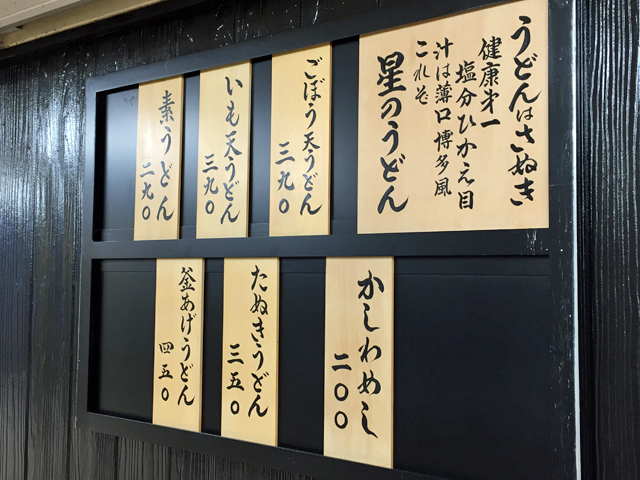 うどんはさぬき
健康才一
塩分ひかえ目
汁は薄口博多風
これぞ
星のうどん
ごぼう天うどん
三九〇
いも天うどん
三九〇
素うどん
二九〇
かしわめし
二〇〇
たぬきうどん
三五〇
釜あげうどん
四五〇